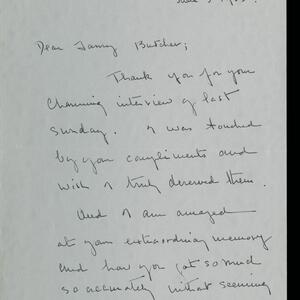 Dear Fanny Butcher;
Thank you for your
charming interview of last
Sunday. I was touched
by your compliments and
wish I truly deserved them.
And I am amazed
at your extraordinary memory
and how you got so much
so accurately without seeming